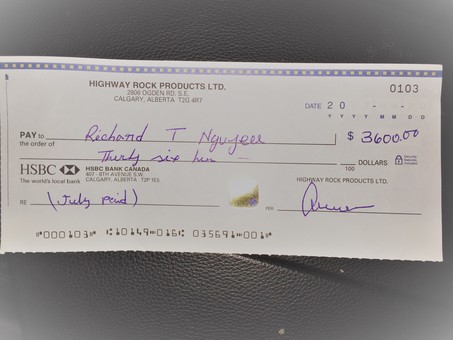 HIGHWAY ROCK PRODUCTS LTD.
2806 OGDEN RD. S.E.
CALGARY, ALBERTA T2G 4R7
0103
DATE 20 - -
Y Y Y Y M M D D
PAY to the order of Richard T Nguyen $ 3600.00
Thirty six hun —
100 DOLLARS
HSBC HSBC BANK CANADA
The world's local bank 407 - 8TH AVENUE S.W.
CALGARY, ALBERTA T2P 1E5
HIGHWAY ROCK PRODUCTS LTD.
RE (July paid)
PER
⑈000103⑈ ⑆10149⑉016⑆ 035691⑉001⑈